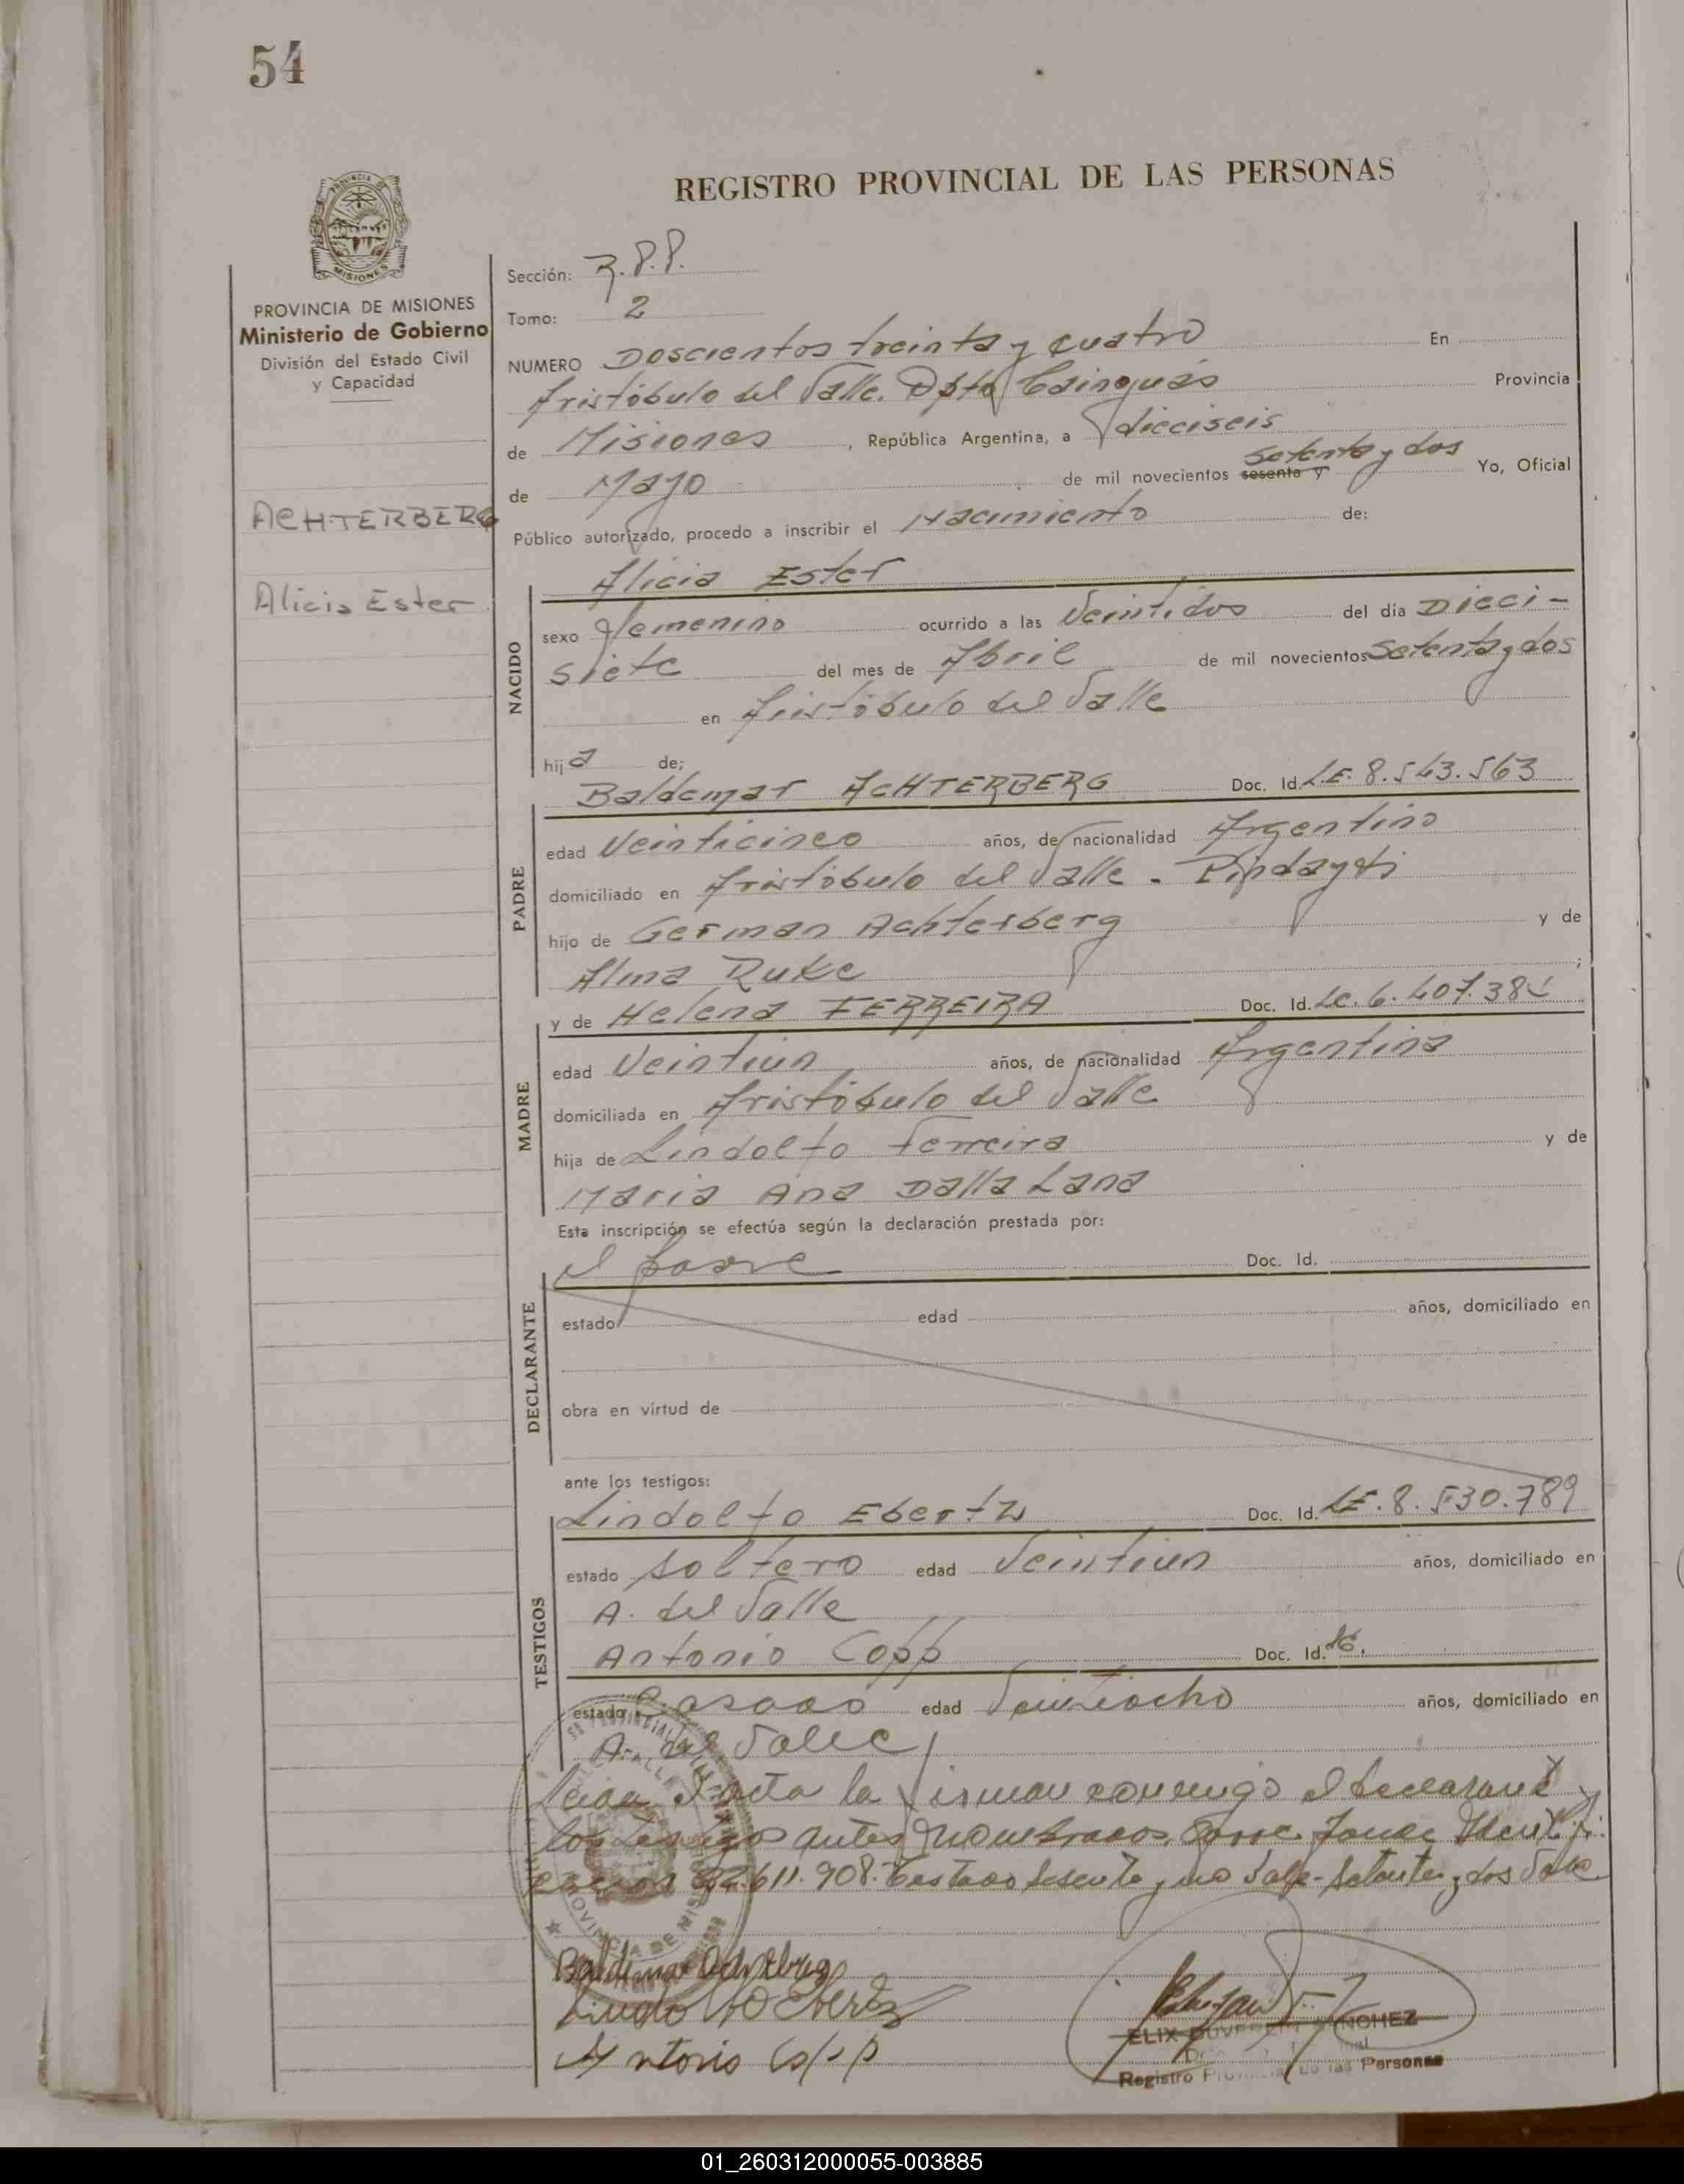 54
REGISTRO PROVINCIAL DE LAS PERSONAS
PROVINCIA DE MISIONES
Ministerio de Gobierno
División del Estado Civil
y Capacidad
ACHTERBERG
Alicia Ester
Sección: R.P.P.
Tomo: 2
NUMERO Doscientos treinta y cuatro En
Aristóbulo del Valle. Dpto Cainguás Provincia
de Misiones, República Argentina, a dieciseis
de Mayo de mil novecientos sesenta y setenta y dos Yo, Oficial
Público autorizado, procedo a inscribir el Nacimiento de:
Alicia Ester
NACIDO
sexo femenino ocurrido a las Veintidos del día Dieci-
siete del mes de Abril de mil novecientos Setenta y dos
en Aristóbulo del Valle
hija de;
Baldemar ACHTERBERG Doc. Id. L.E. 8.543.563
PADRE
edad Veinticinco años, de nacionalidad Argentino
domiciliado en Aristóbulo del Valle - Pindayti
hijo de German Achterberg y de
Alma Ruke ;
y de Helena FERREIRA Doc. Id. L.C. 6.407.38
MADRE
edad Veintiun años, de nacionalidad Argentina
domiciliada en Aristóbulo del Valle
hija de Lindolfo Ferreira y de
Maria Ana Dalla Lana
Esta inscripción se efectúa según la declaración prestada por:
el padre Doc. Id.
DECLARANTE
estado edad años, domiciliado en
obra en virtud de
ante los testigos:
Lindolfo Ebertz Doc. Id. L.E. 8.530.789
TESTIGOS
estado soltero edad Veintiun años, domiciliado en
A. del Valle
Antonio Copp Doc. Id.
estado casado edad Veintiocho años, domiciliado en
A. del Valle
Leida el acta la firman conmigo el declarante y
los testigos antes nombrados.
611.908. Testado sesenta y no vale - setenta y dos Vale
Baldimar Achterberg
Lindolfo Ebertz
Antonio Copp
SANCHEZ
Registro Provincial de las Personas
01_260312000055-003885